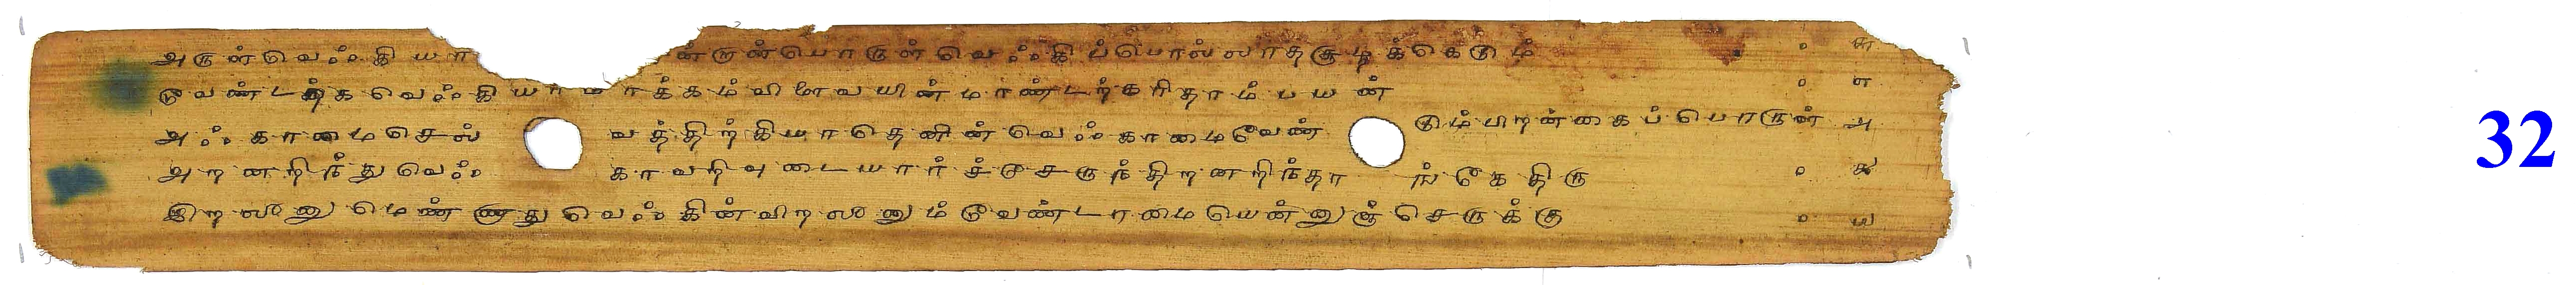 அருள்வெஃகியா ன்றான்பொருள்வெஃகிப்பொல்லாதசூழக்கெடும் ௬
வேண்டற்கவெஃகியாமாக்கம்விளைவயின்மாண்டற்கரிதாம்பயன் ௭
அஃகாமைசெல் வத்திற்கியாதெனின்வெஃகாமைவேண் டும்பிறன்கைப்பொருள் ௮
அறனறிந்துவெஃ காவறிவுடையார்ச்சேருந்திறனறிந்தா ங்கேதிரு ௯
இறலீனுமெண்ணாதுவெஃகின்விறலீனும்வேண்டாமையென்னுஞ்செருக்கு ௰
32